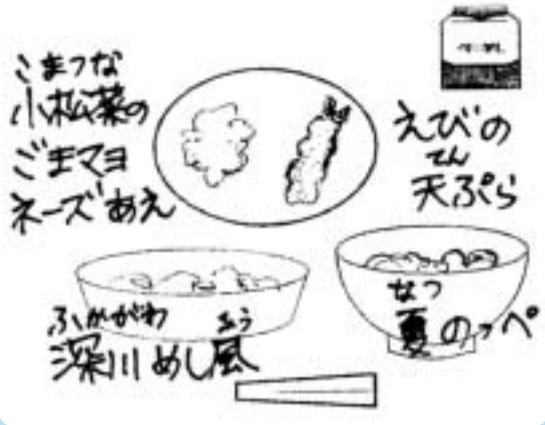 こまつな
小松菜の
ごまマヨ
ネーズあえ
えびの
てん
天ぷら
ふかがわ ふう
深川めし風
なつ
夏のっぺ